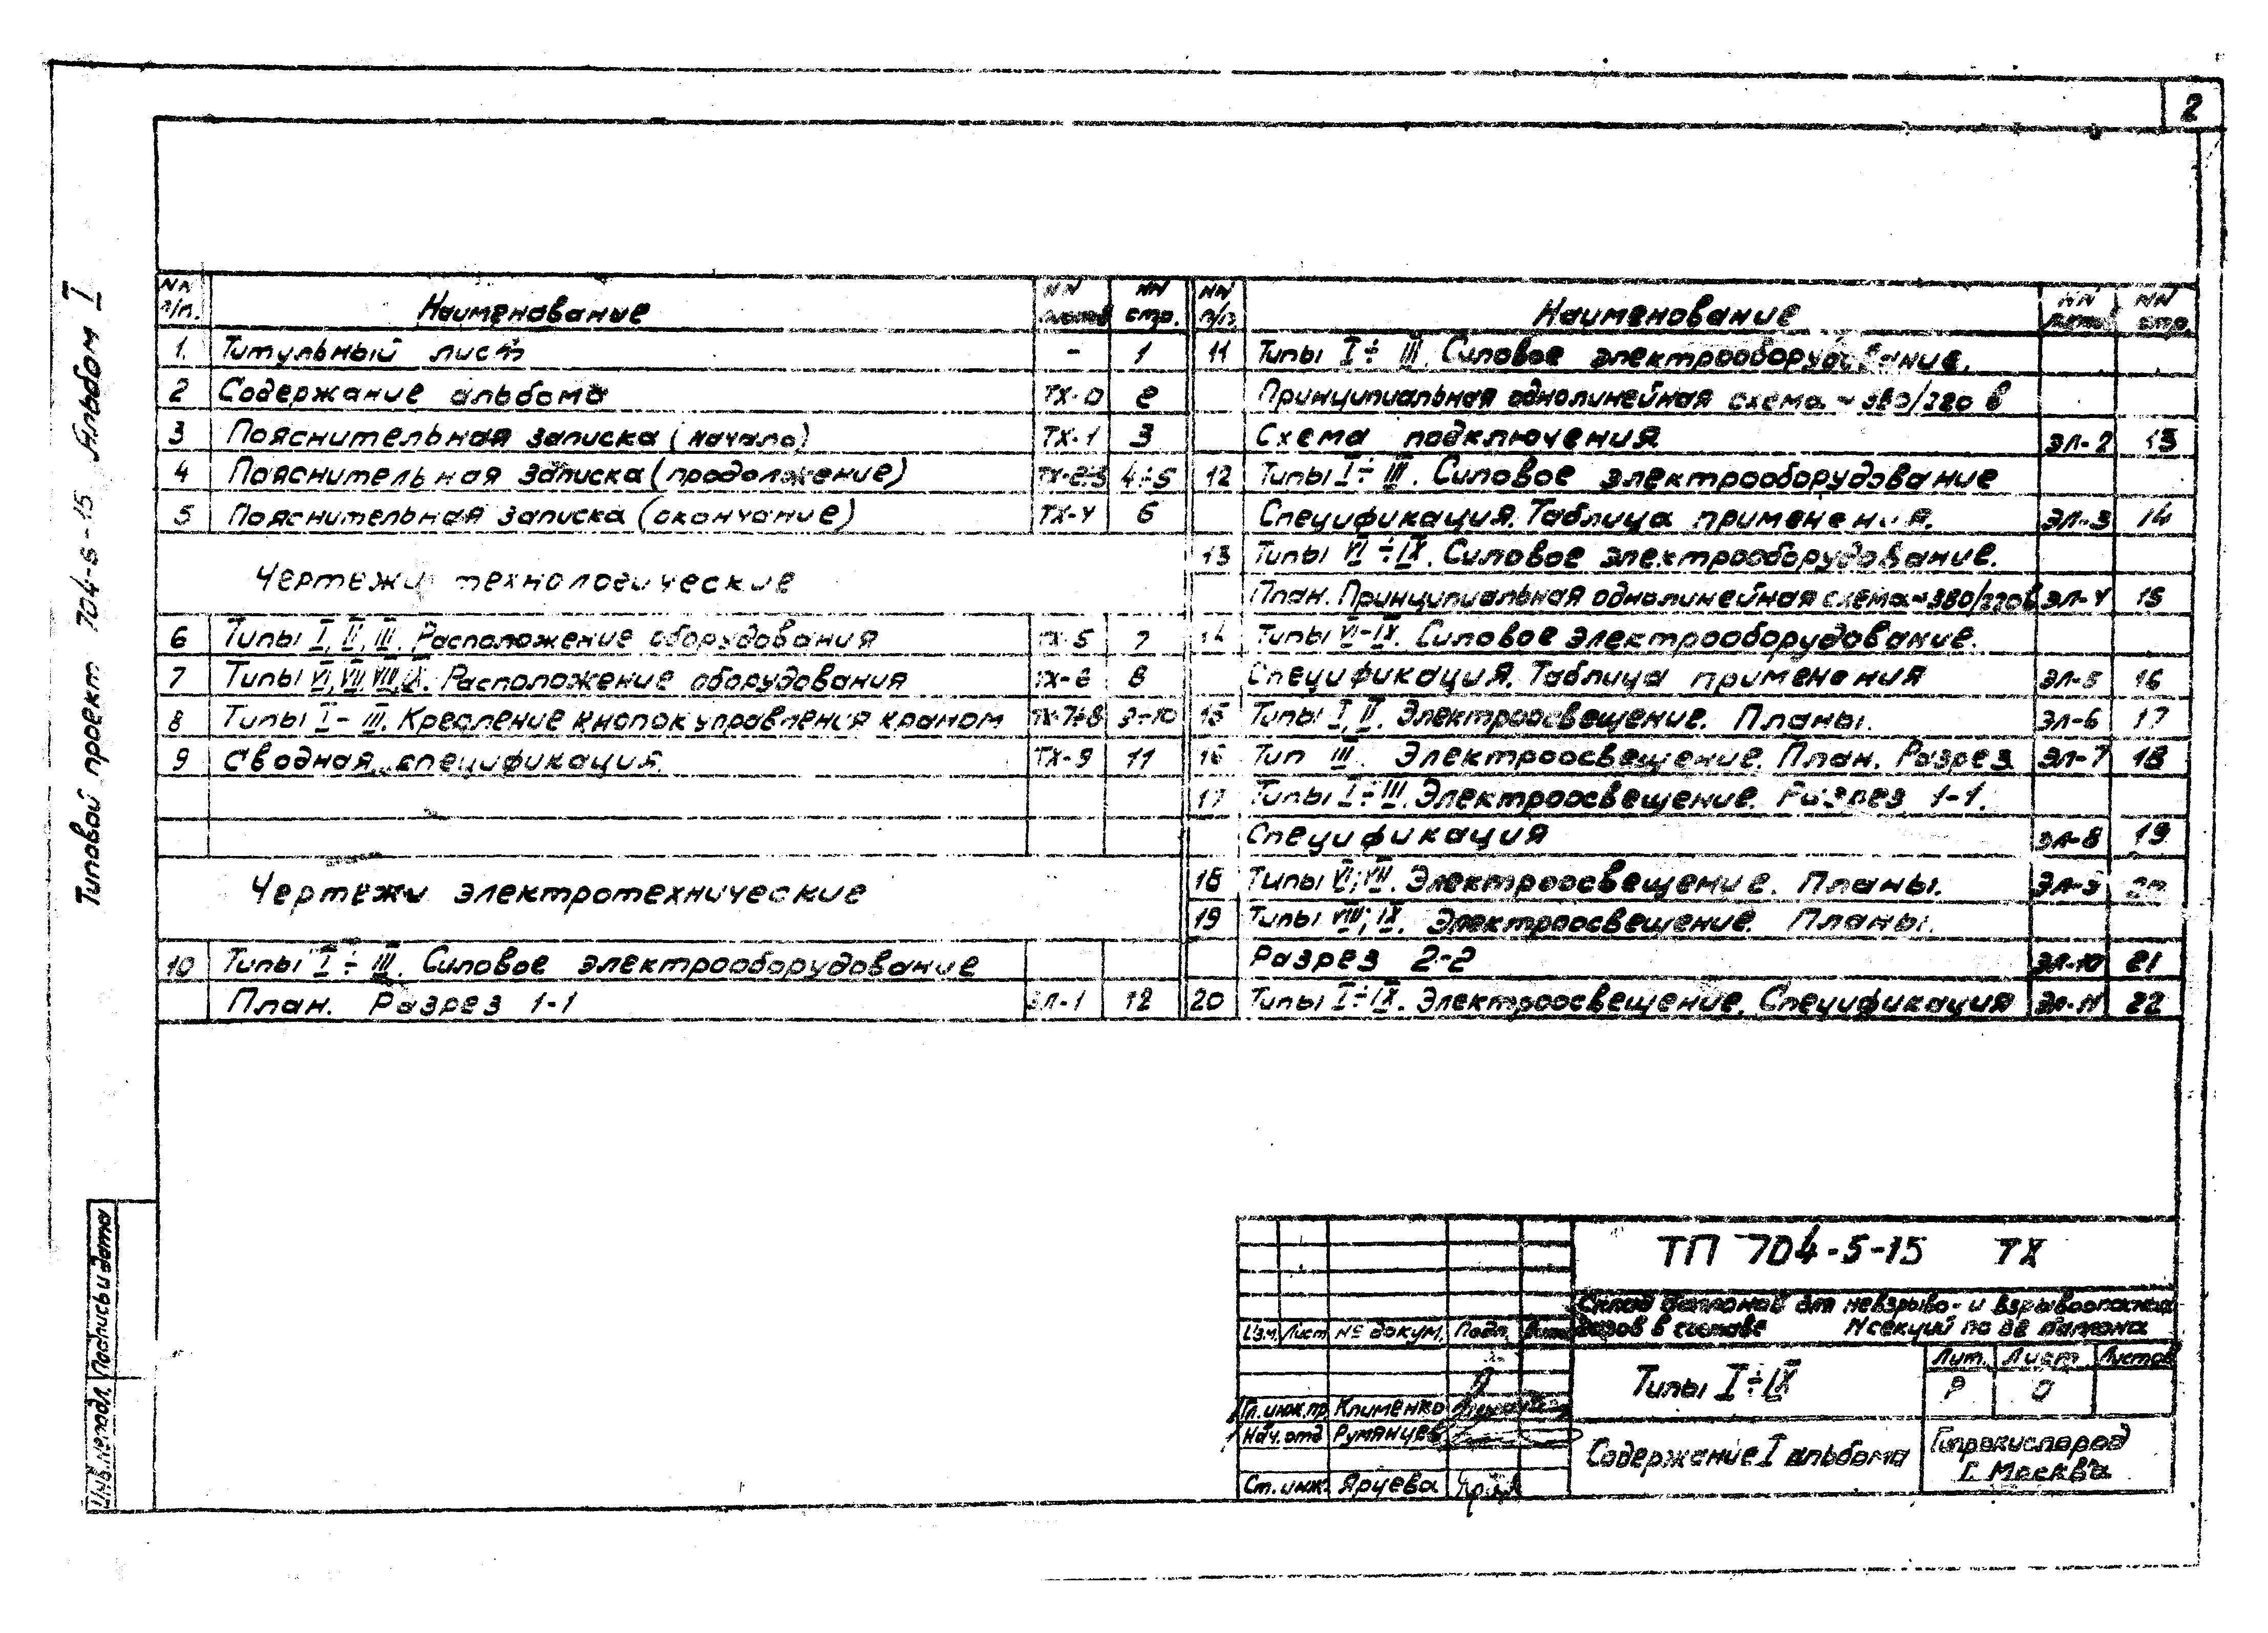 2
Типовой проект 704-5-15 Альбом I
NN п/п. Наименование NN листов NN стр.
1. Титульный лист - 1
2 Содержание альбома ТХ-0 2
3 Пояснительная записка (начало) ТХ-1 3
4 Пояснительная записка (продолжение) ТХ-2÷3 4÷5
5 Пояснительная записка (окончание) ТХ-4 6
Чертежи технологические
6 Типы I, II, III. Расположение оборудования ТХ-5 7
7 Типы VI, VII, VIII, IX. Расположение оборудования ТХ-6 8
8 Типы I-III. Крепление кнопок управления краном ТХ-7÷8 9÷10
9 Сводная спецификация. ТХ-9 11
Чертежи электротехнические
10 Типы I÷III. Силовое электрооборудование
План. Разрез 1-1 ЭЛ-1 12
NN п/п Наименование NN листов NN стр.
11 Типы I÷III. Силовое электрооборудование.
Принципиальная однолинейная схема ~380/220 в
Схема подключения ЭЛ-2 13
12 Типы I÷III. Силовое электрооборудование
Спецификация. Таблица применения. ЭЛ-3 14
13 Типы VI÷IX. Силовое электрооборудование.
План. Принципиальная однолинейная схема ~380/220в ЭЛ-4 15
14 Типы VI-IX. Силовое электрооборудование.
Спецификация. Таблица применения ЭЛ-5 16
15 Типы I, II. Электроосвещение. Планы. ЭЛ-6 17
16 Тип III. Электроосвещение. План. Разрез ЭЛ-7 18
17 Типы I÷III. Электроосвещение. Разрез 1-1.
Спецификация ЭЛ-8 19
18 Типы VI; VII. Электроосвещение. Планы. ЭЛ-9 20
19 Типы VIII; IX. Электроосвещение. Планы.
Разрез 2-2 ЭЛ-10 21
20 Типы I÷IX. Электроосвещение. Спецификация ЭЛ-11 22
Подпись и дата
Инв.№ подл.
ТП 704-5-15 ТХ
Склад баллонов для невзрыво- и взрывоопасных
газов в составе N секций по баллона
Изм. Лист № докум. Подп. Дата
Типы I÷IX
Лит. Лист Листов
Р 0
Гл. инж. пр. Клименко
Нач. отд Румянцев
Ст. инж. Ярцева
Содержание I альбома
Гипрокислород
г. Москва